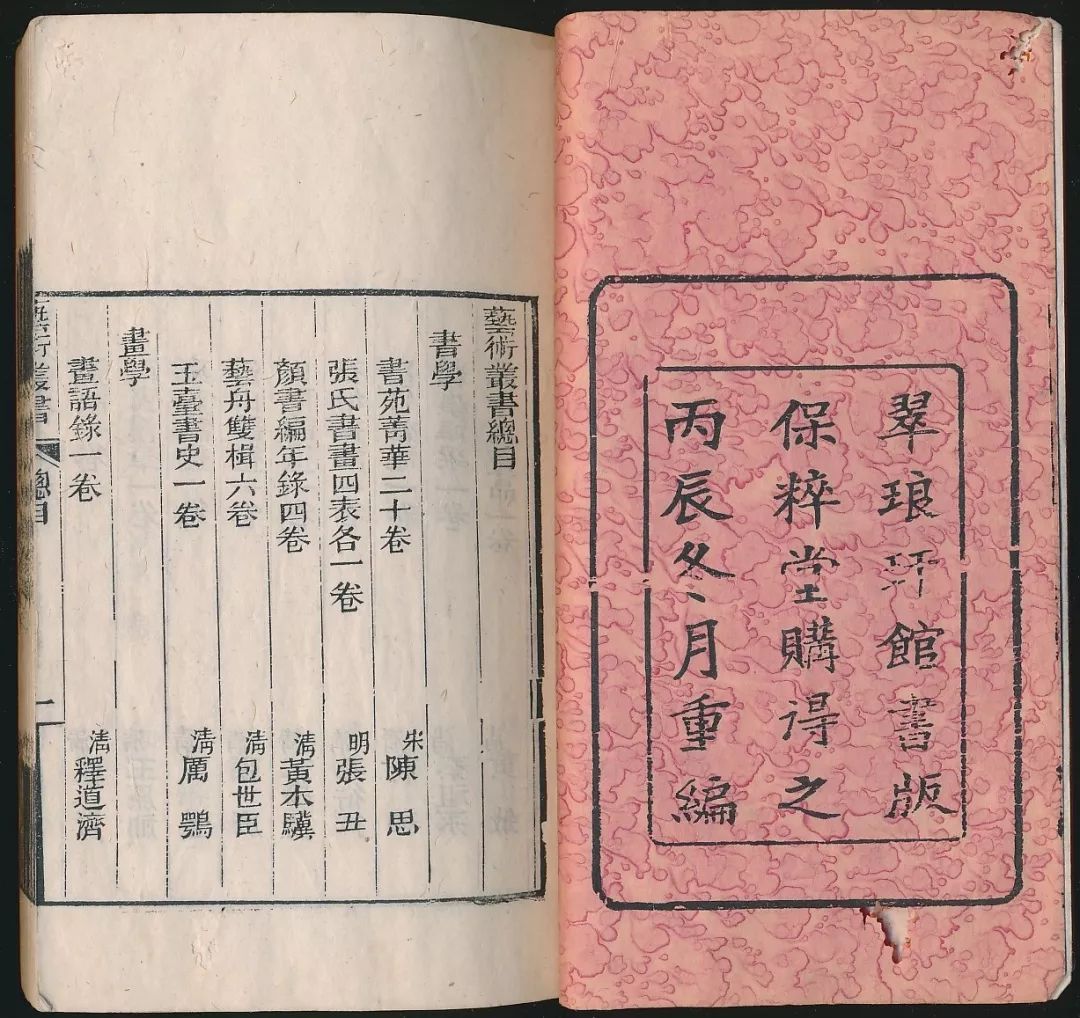 翠琅玕館書版
保粹堂購得之
丙辰冬月重編
藝術叢書總目
書學
書苑菁華二十卷 宋陳思
張氏書畫四表各一卷 明張丑
顏書編年錄四卷 清黃本驥
藝舟雙楫六卷 清包世臣
玉臺書史一卷 清厲鶚
畫學
畫語錄一卷 清釋道濟
藝術叢書 總目 一